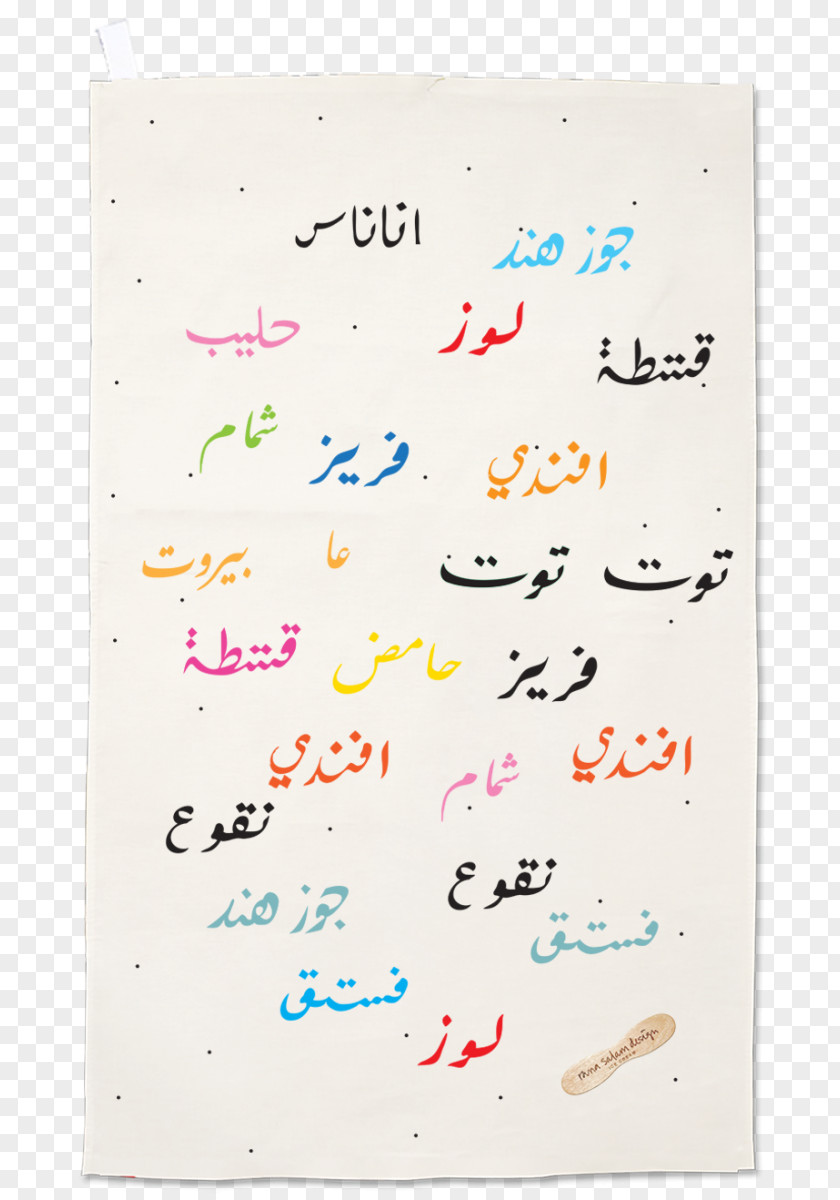 اناناس
جوز هند
لوز
حليب
قشطة
شمام
فريز
افندي
توت توت عا بيروت
فريز
حامض
قشطة
افندي
شمام
افندي
نقوع
نقوع
جوز هند
فستق
فستق
لوز
rana salam design
ICE CREAM